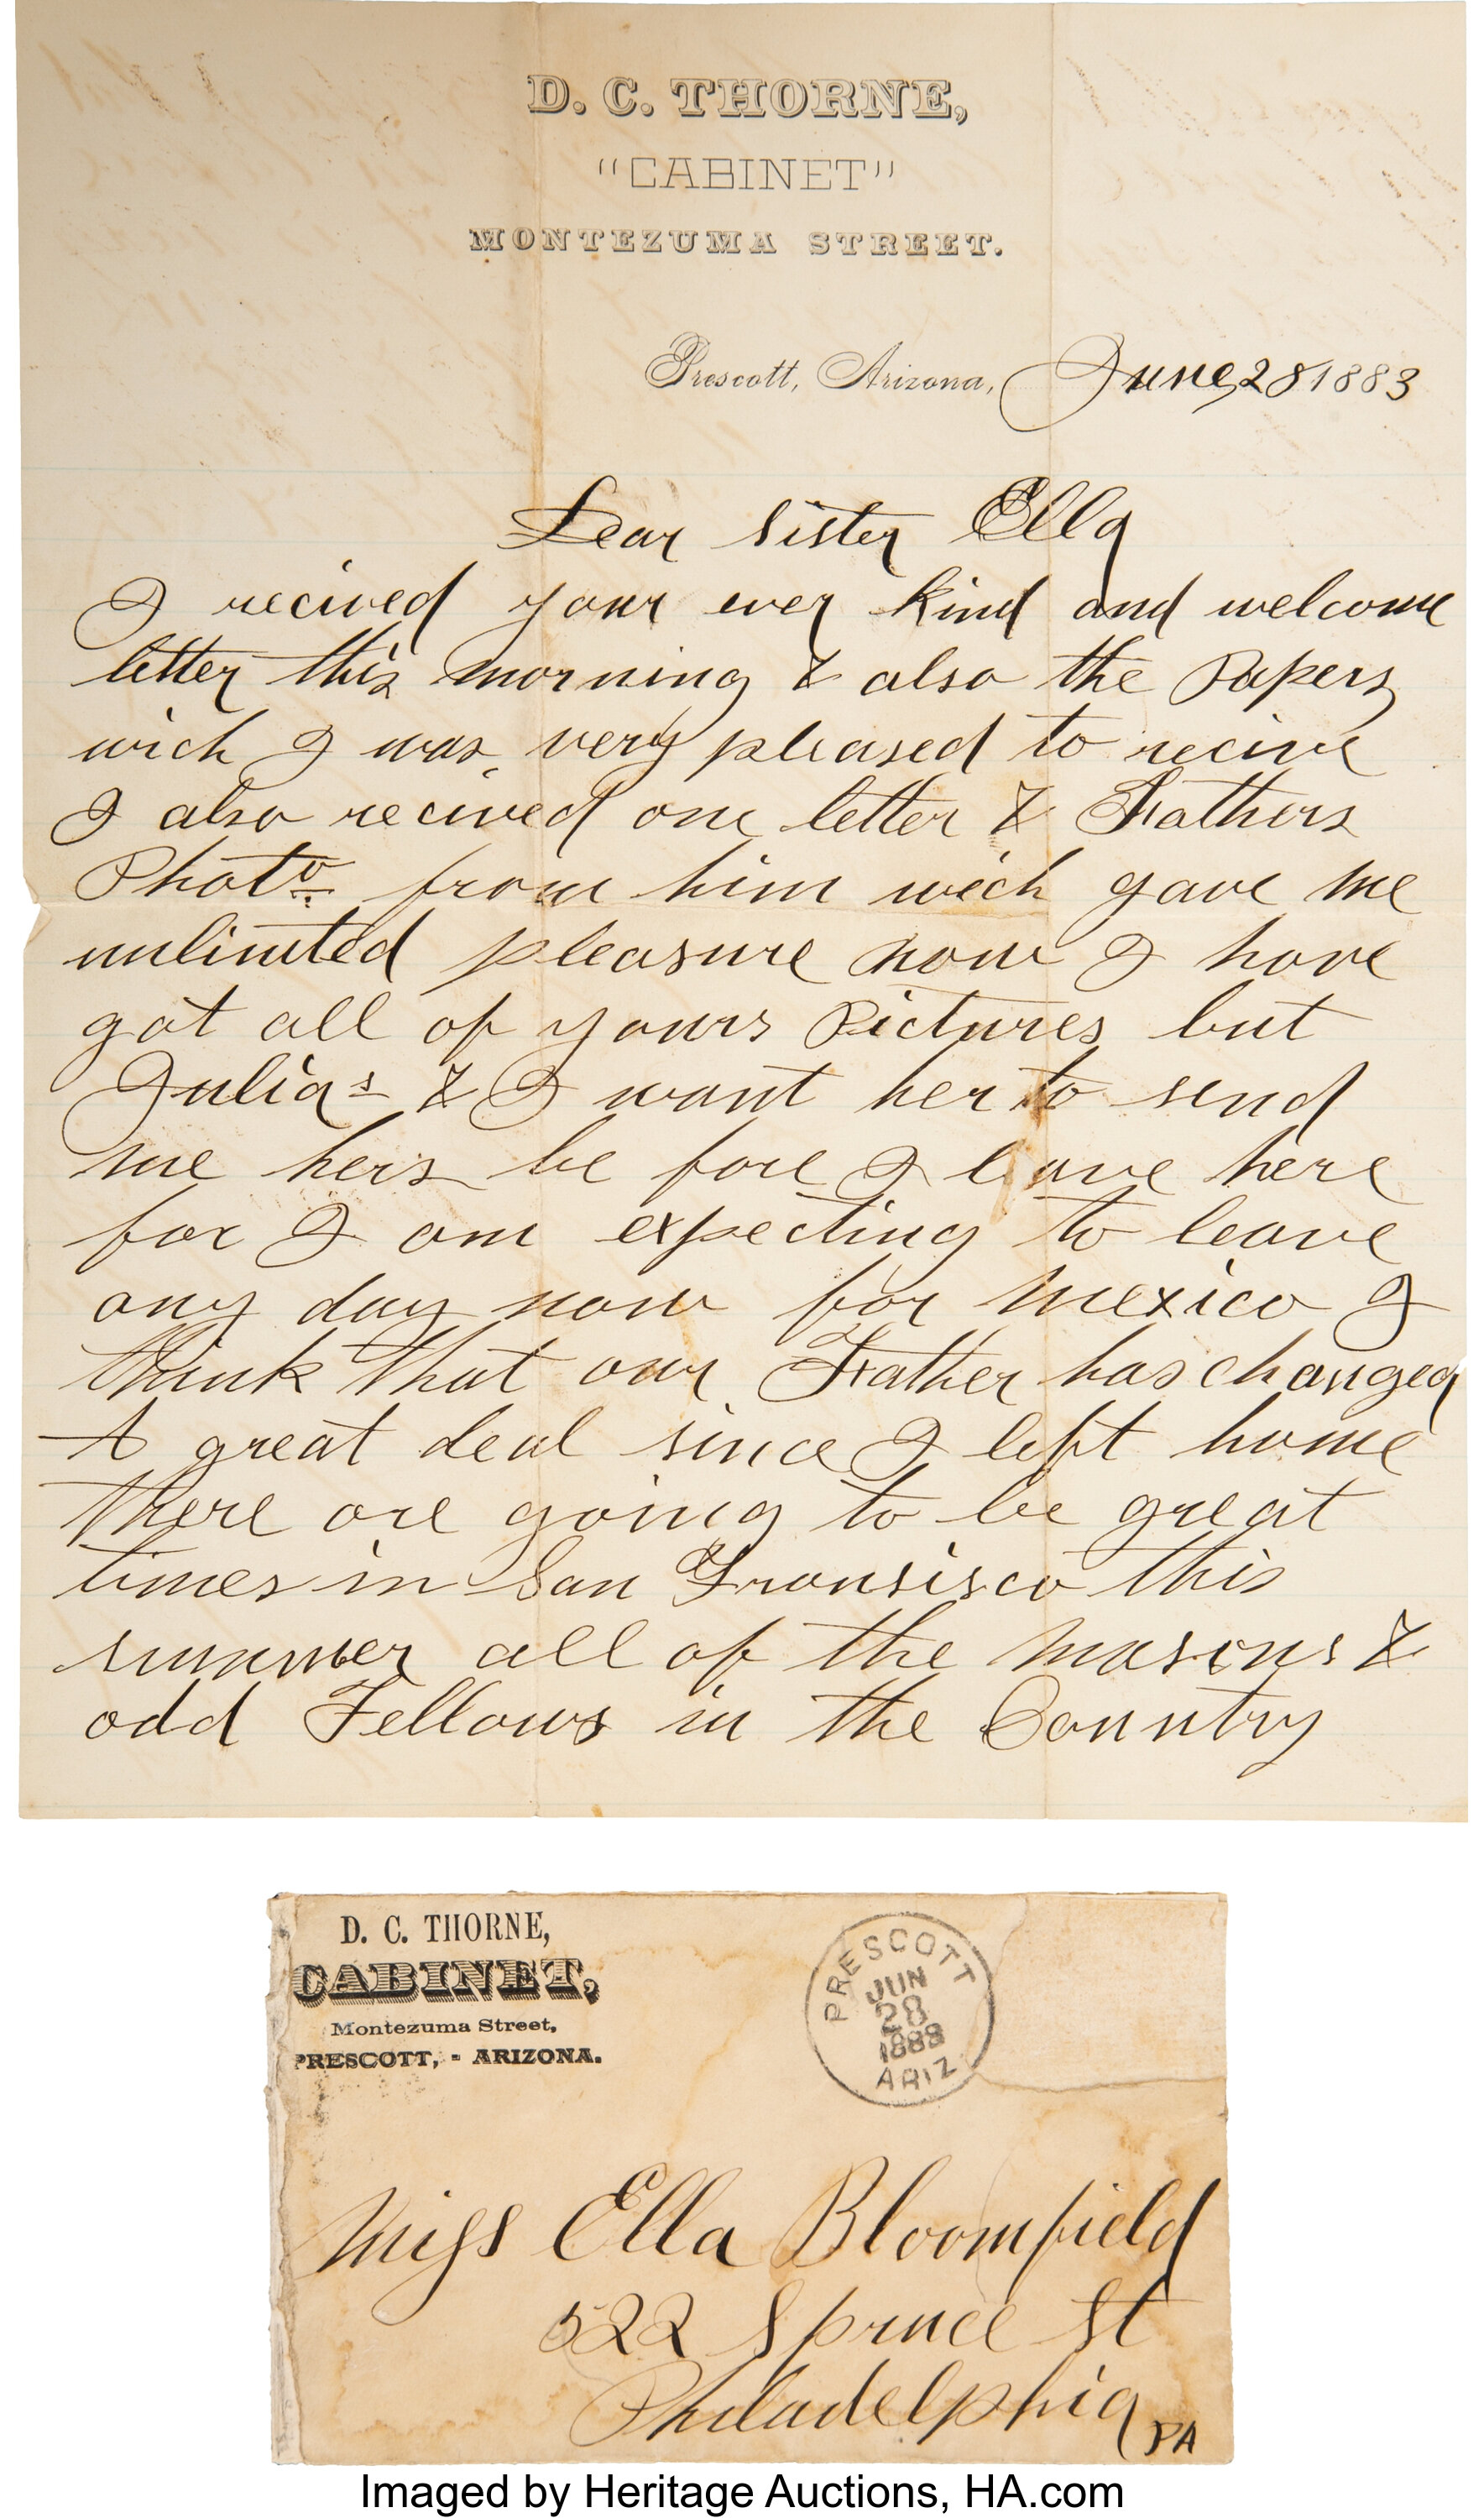 D. C. THORNE,
"CABINET"
MONTEZUMA STREET.
Prescott, Arizona, June, 28 1883
Dear Sister Ella
I recived your ever kind and welcome
letter this morning & also the Papers
wich I was very pleased to recive
I also recived one letter & Fathers
Photo from him wich gave me
unlimited pleasure now I have
got all of yours Pictures but
Julias & I want her to send
me hers be fore I leave here
for I am expecting to leave
any day now for Mexico I
think that our Father has changed
A great deal since I left home
there are going to be great
times in San Fransisco this
summer all of the Masons &
odd Fellows in the Country
D. C. THORNE,
CABINET,
Montezuma Street,
PRESCOTT, - ARIZONA.
PRESCOTT
JUN
28
1883
ARIZ
Miss Ella Bloomfield
522 Spruce St
Philadelphia PA
Imaged by Heritage Auctions, HA.com